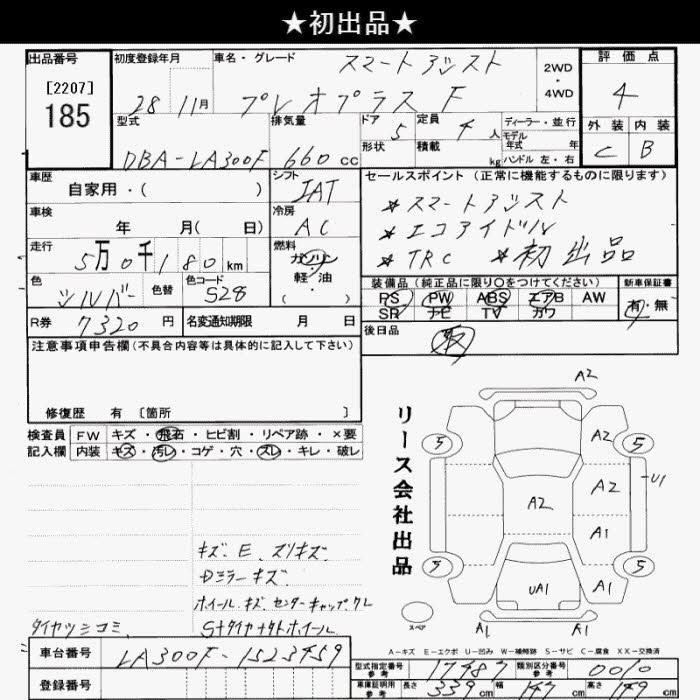 ★初出品★
出品番号
[2207]
185
初度登録年月
28 11月
車名・グレード
スマートアシスト
プレオプラス F
2WD
・
4WD
評価点
4
外装 内装
C B
型式
DBA-LA300F
排気量
660 cc
ドア 5
形状
定員 4 人
積載 kg
ディーラー・並行
モデル年式 年
ハンドル 左・右
車歴
自家用・( )
シフト
IAT
車検
年 月( 日)
冷房
AC
走行
5万0千180 km
燃料
ガソリン
軽油
・
( )
色
シルバー
色替
色コード
S28
R券 7320 円
名変通知期限 月 日
セールスポイント (正常に機能するものに限ります)
★スマートアシスト
★エコアイドル
★TRC ★初出品
装備品 (純正品に限り○をつけてください)
PS PW ABS エアB AW
SR ナビ TV カワ
新車保証書
有・無
後日品
取
注意事項申告欄 (不具合内容等は具体的に記入して下さい)
修復歴 有 〔箇所 〕
検査員
記入欄
FW キズ・飛石・ヒビ割・リペア跡・×要
内装 キズ・汚レ・コゲ・穴・スレ・キレ・破レ
リース会社出品
A2
5 A2 5
A2 A2 U1
A1
5 UA1 A1 5
スペア
A1 A1
キズ、E、スリキズ
Dミラーキズ
ホイールキズ、センターキャップクレ
タイヤツミコミ S+タイヤ+ナットホイール
A-キズ E-エクボ U-凹み W-補修跡 S-サビ C-腐食 XX-交換済
車台番号 LA300F-1523459
登録番号
型式指定番号 参考 17987
類別区分番号 参考 0010
車庫証明用 参考 長さ 339 cm 幅 147 cm 高さ 149 cm